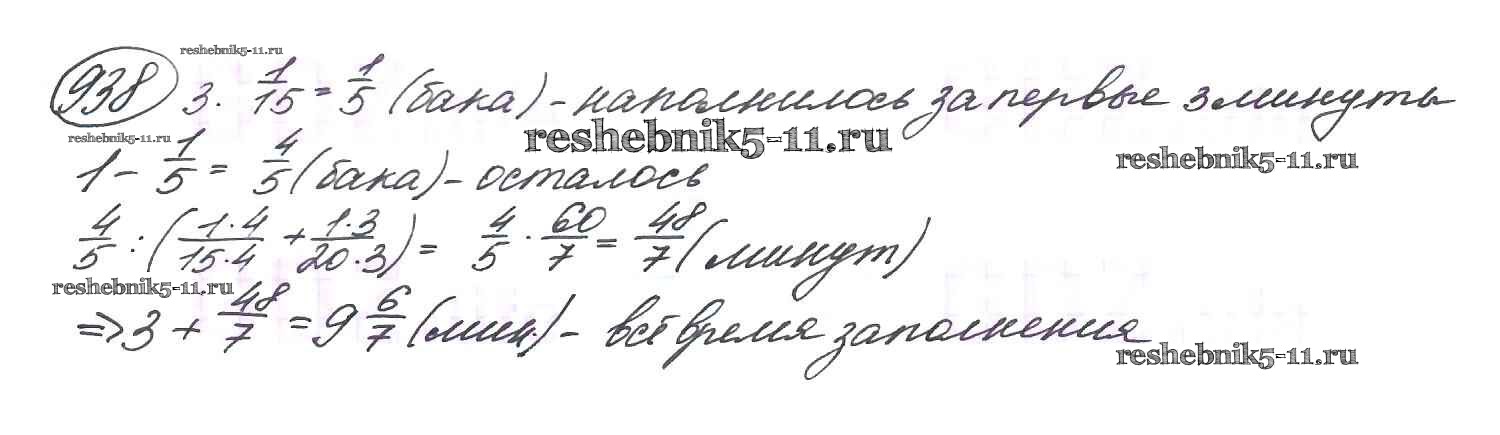 reshebnik5-11.ru
938 3 · 1/15 = 1/5 (бака) - наполнилось за первые 3 минуты
reshebnik5-11.ru reshebnik5-11.ru reshebnik5-11.ru
1 - 1/5 = 4/5 (бака) - осталось
4/5 : (1·4/15·4 + 1·3/20·3) = 4/5 · 60/7 = 48/7 (минут)
reshebnik5-11.ru
=> 3 + 48/7 = 9 6/7 (мин.) - всё время заполнения
reshebnik5-11.ru